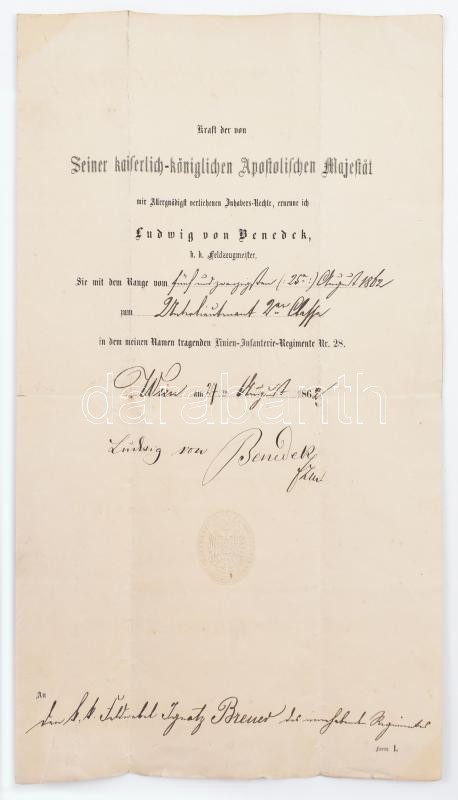 Kraft der von
Seiner kaiserlich-königlichen Apostolischen Majestät
mir Allergnädigst verliehenen Inhabers-Rechte, ernenne ich
Ludwig von Benedek,
k. k. Feldzeugmeister,
Sie mit dem Range vom fünf und zwanzigsten (: 25ten :) August 1862
zum Unterlieutenant 2ter Classe
in dem meinen Namen tragenden Linien-Infanterie-Regimente Nr. 28.
Wien am 27 ten August 1862
Ludwig von Benedek
FZM
darabanth
An
den k. k. Feldwebel Ignatz Breuer des Regimentes
Form I.